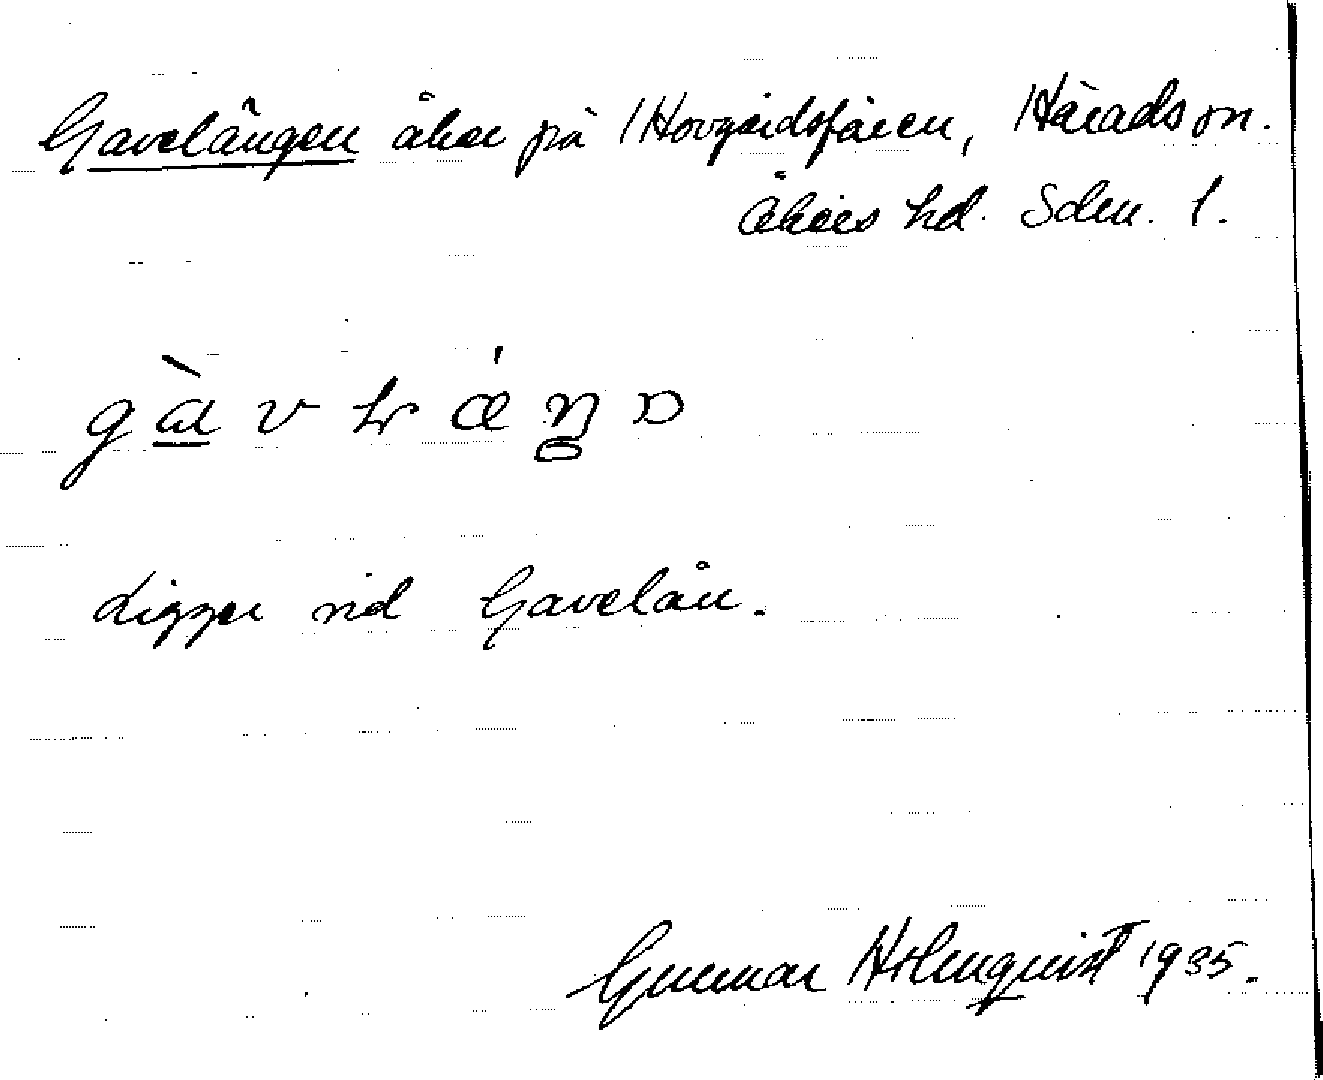 Gavelängen åker på Hovgårdsfären, Härads sn.
Åkers hd. Sdm. l.
Ligger vid Gavelån.
Gunnar Holmquist 1935.